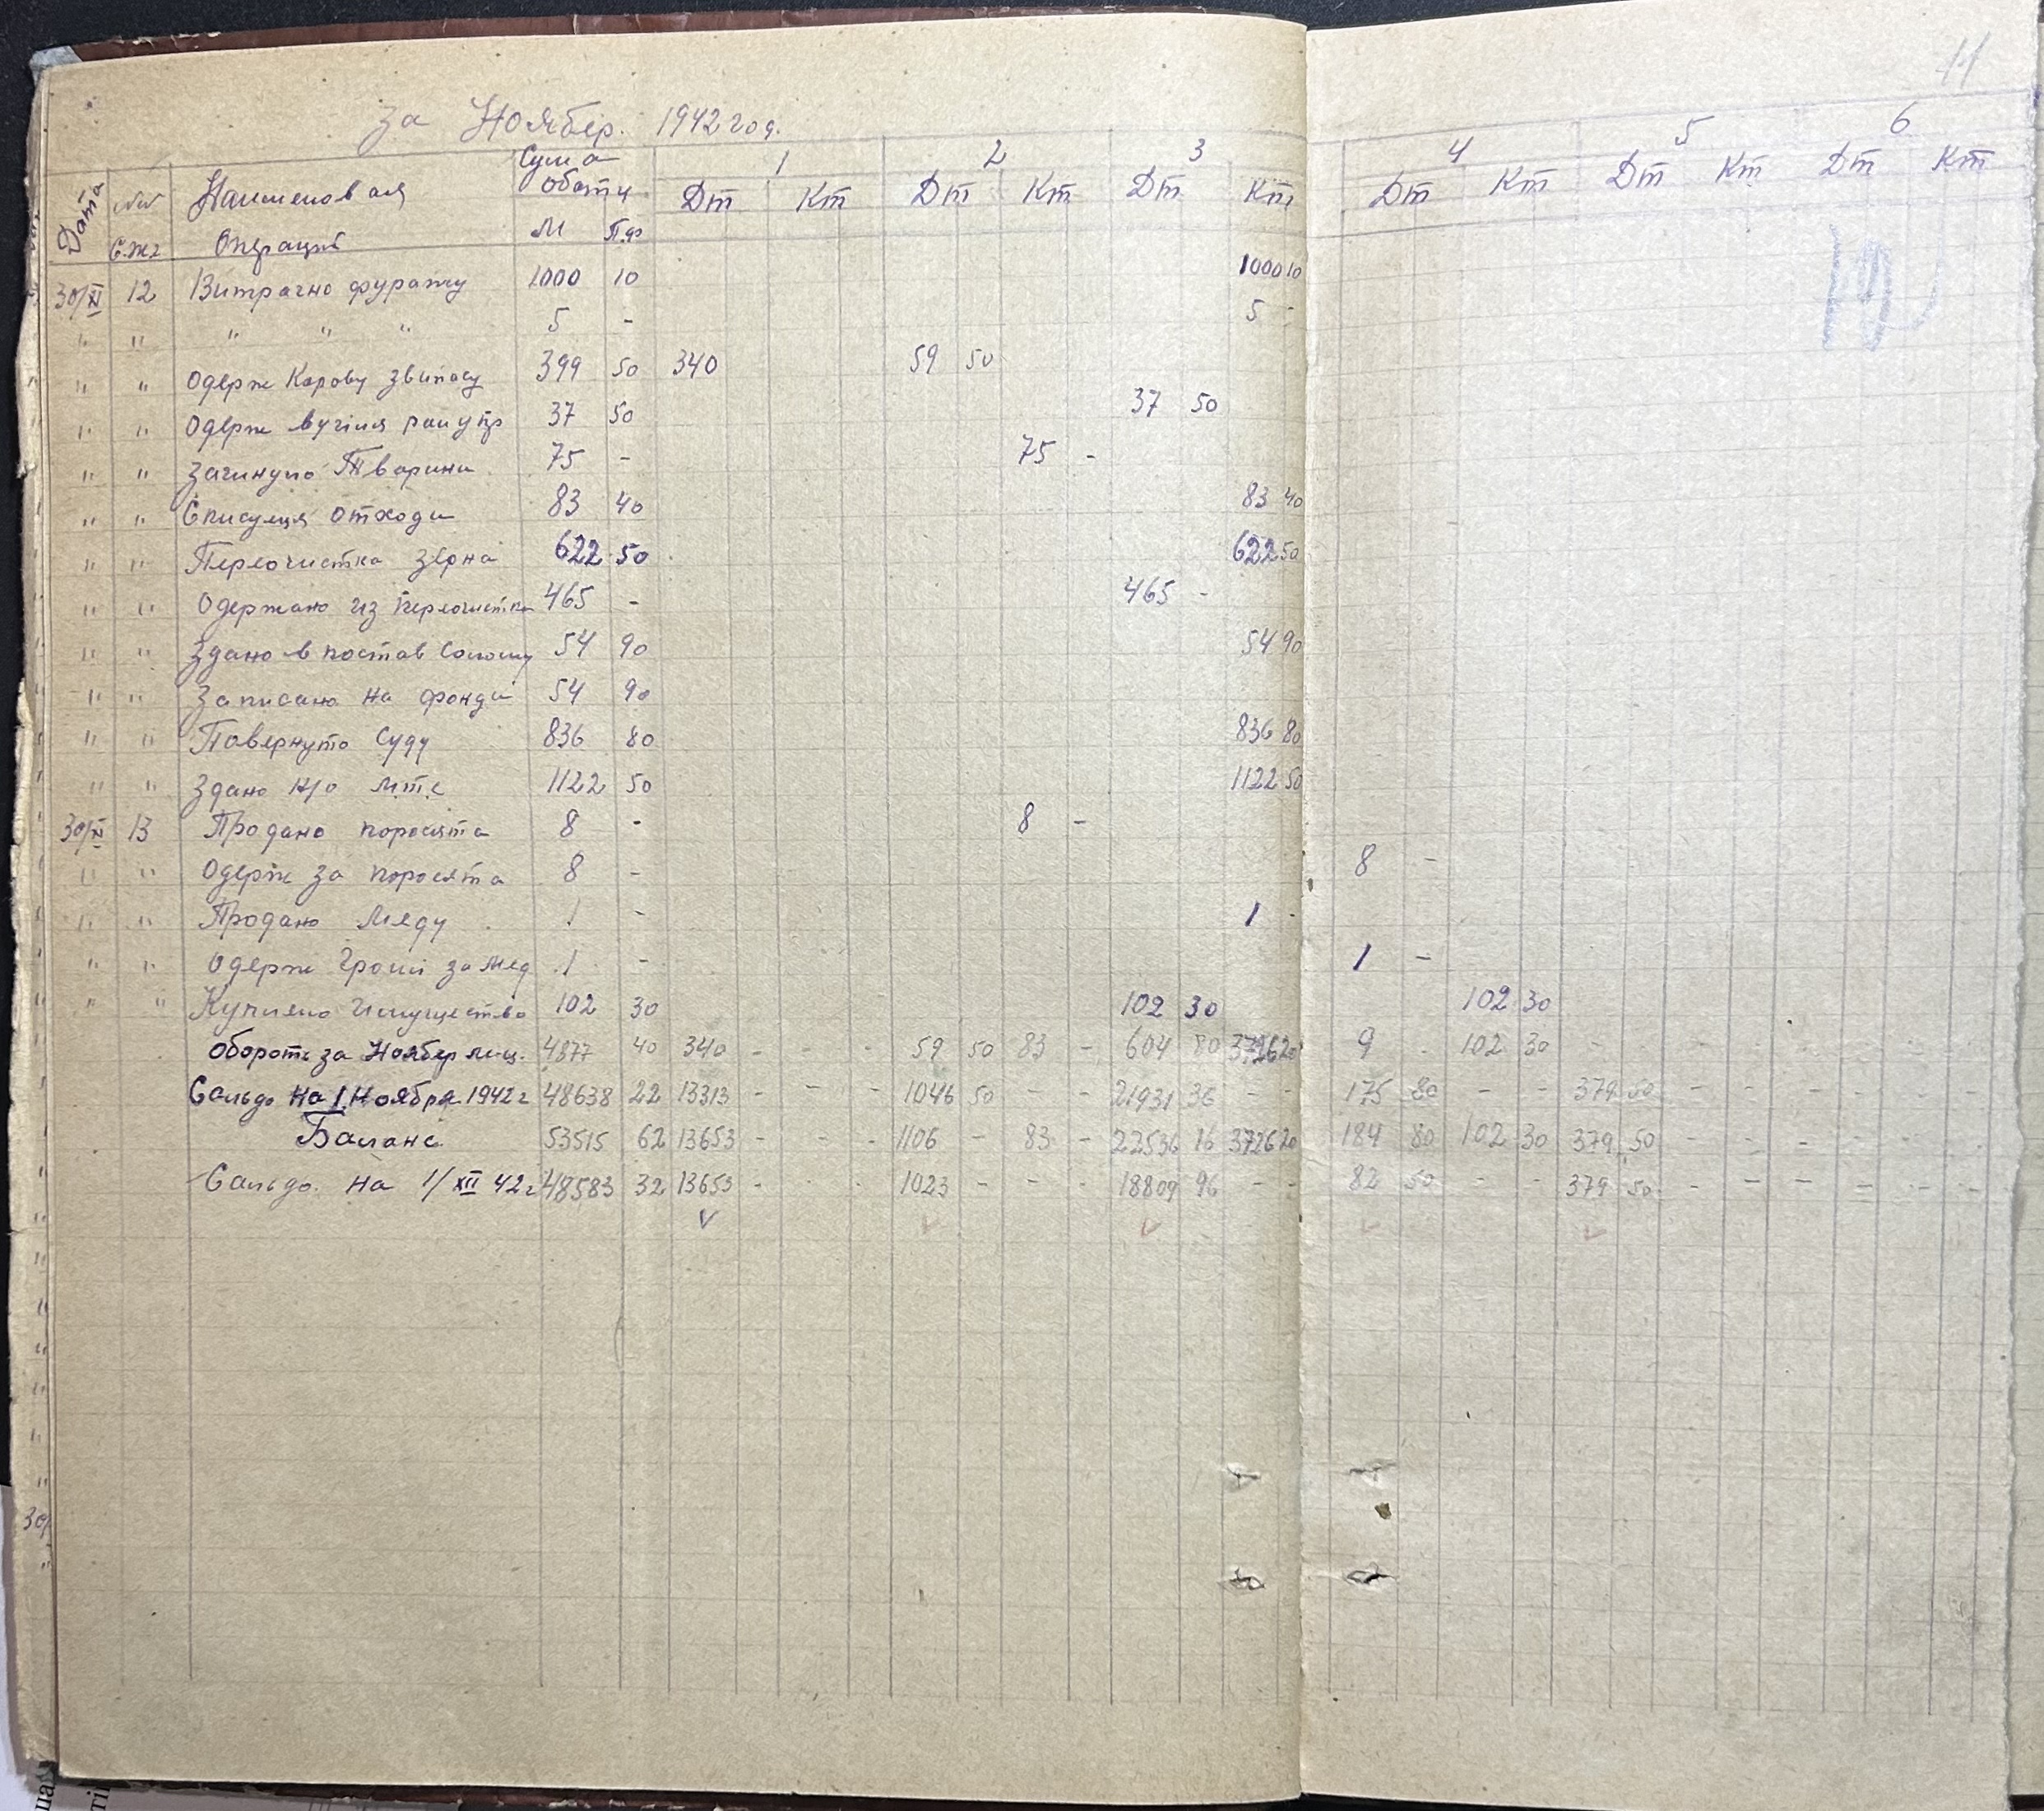 11
за Ноябер. 1942 год.
Дата №№ Наименов ая Сума 1 2 3 4 5 6
Операций М Пф Дт Кт Дт Кт Дт Кт Дт Кт Дт Кт Дт Кт
10
30/XI 12 Витрачно фуражу 1000 10 1000 10
" " " " " 5 - 5 -
" " Одерж Корову звипасу 399 50 340 59 50
" " Одерж вугілля рай упр 37 50 37 50
" " Загинуло Тварини 75 - 75 -
" " Списуеця отходи 83 40 83 40
" " Переочистка зерна 622 50 622 50
" " Одержано из переочистки 465 - 465 -
" " Здано в постав Солому 54 90 54 90
" " Записано на фонди 54 90
" " Повернуто Суду 836 80 836 80
" " Здано н/о м.т.с 1122 50 1122 50
30/XI 13 Продано поросята 8 - 8 -
" " Одерж за поросята 8 - 8 -
" " Продано Меду 1 - 1 -
" " Одерж Гроши за мед 1 - 1 -
" " Куплено Имущество 102 30 102 30 102 30
Оборот за Ноябер м-ц. 4877 40 340 - - - 59 50 83 - 604 80 3726 20 9 - 102 30 - - - - - - - -
Сальдо на 1 Ноября 1942 г 48638 22 13313 - - - 1046 50 - - 21931 36 - - 175 80 - - 379 50 - - - - - -
Баланс 53515 62 13653 - - - 1106 - 83 - 22536 16 3726 20 184 80 102 30 379 50 - - - - - -
Сальдо на 1/XII 42 г 48583 32 13653 - - - 1023 - - - 18809 96 - - 82 50 - - 379 50 - - - - - -
30/